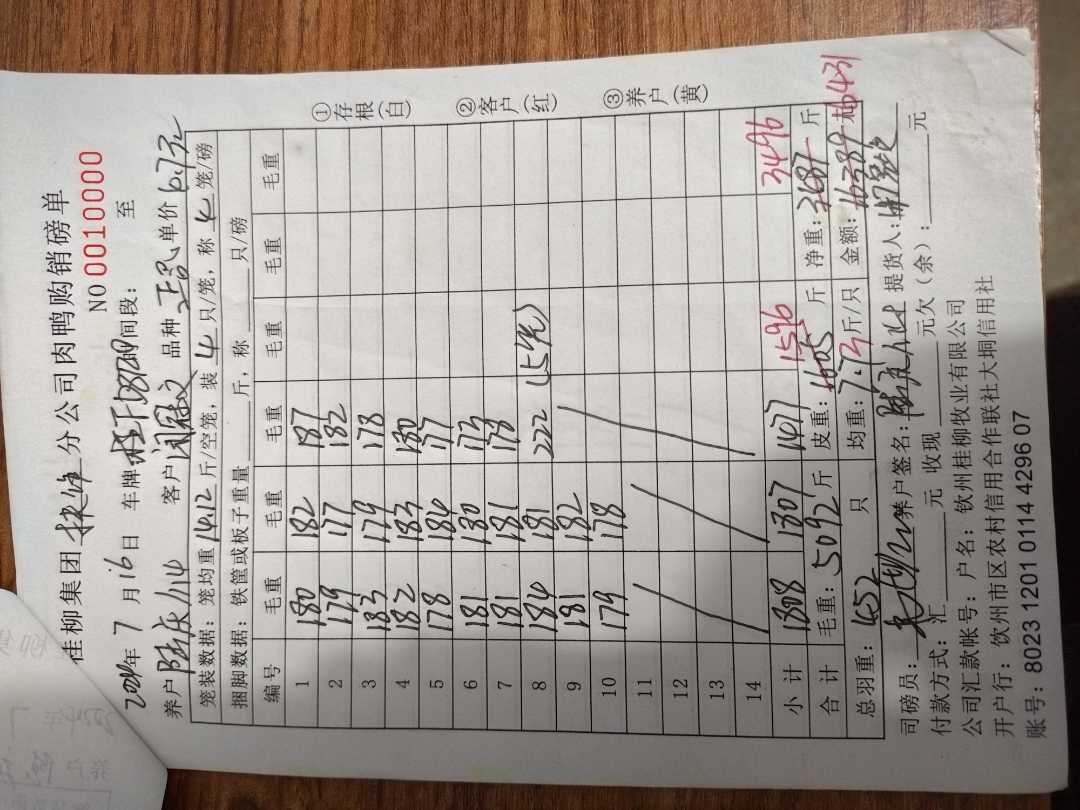 桂柳集团 分公司肉鸭购销磅单
NO 0010000
2024年 7 月 16 日 车牌: 时间段: 至
养户 陈庆 114 客户 品种 单价 6.7元
笼装数据: 笼均重 14.12 斤/空笼, 装 4 只/笼, 称 笼/磅
捆脚数据: 铁筐或板子重量 斤, 称 只/磅
编号 毛重 毛重 毛重 毛重 毛重 毛重
1 180 182 187
2 179 177 182
3 183 179 178
4 182 183 180
5 178 184 177
6 181 180 173
7 181 181 178
8 184 181 222
9 181 182
10 179 178
11
12
13
14
小计 1808 1807 1477 1596 3496
合计 毛重: 5092 斤 皮重: 1605 斤 净重: 3487 斤
总羽重: 452 只 均重: 7.73 斤/只 金额: 16389 16431
司磅员: 养户签名: 提货人:
付款方式: 汇 元 收现 元欠(余): 元
公司汇款帐号: 户名: 钦州桂柳牧业有限公司
开户行: 钦州市区农村信用合作联社大垌信用社
账号: 8023 1201 0114 4296 07
①存根(白)
②客户(红)
③养户(黄)